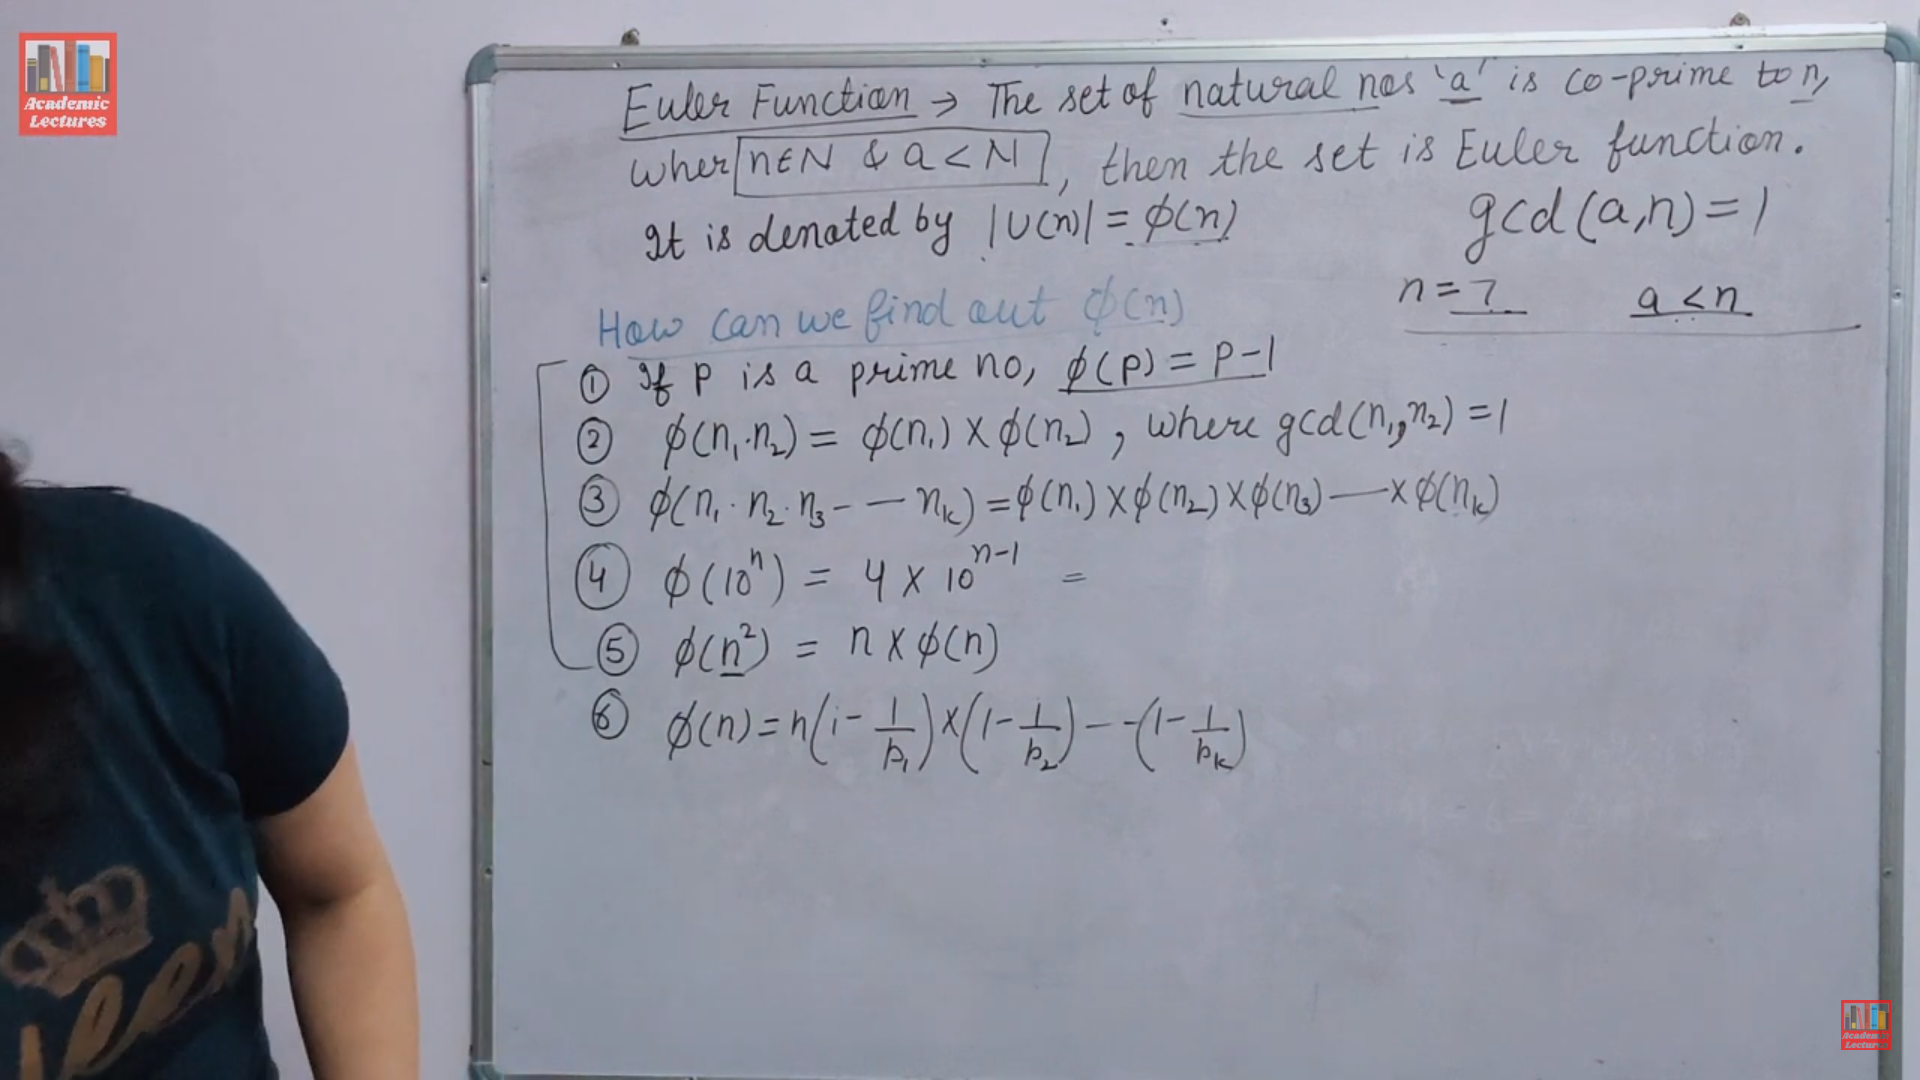 Academic
Lectures
Euler Function → The set of natural nos 'a' is co-prime to n,
wher n∈N & a<N, then the set is Euler function.
It is denoted by |U(n)| = ϕ(n)
gcd(a,n)=1
n=7 a<n
How can we find out ϕ(n)
① If P is a prime no, ϕ(P) = P-1
② ϕ(n₁·n₂) = ϕ(n₁) × ϕ(n₂), where gcd(n₁,n₂) = 1
③ ϕ(n₁·n₂·n₃-- — nₖ) = ϕ(n₁)×ϕ(n₂)×ϕ(n₃) — × ϕ(nₖ)
④ ϕ(10ⁿ) = 4 × 10ⁿ⁻¹ =
⑤ ϕ(n²) = n × ϕ(n)
⑥ ϕ(n) = n(1 - 1/p₁) × (1 - 1/p₂) -- - (1 - 1/pₖ)
Academic
Lectures